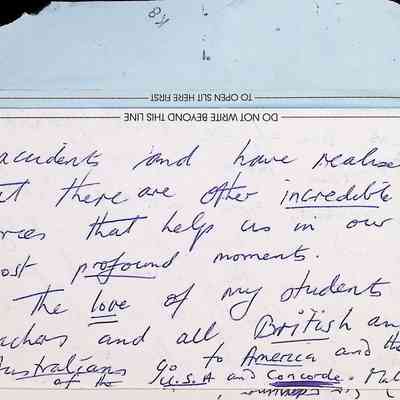 TO OPEN SLIT HERE FIRST
DO NOT WRITE BEYOND THIS LINE
accidents and have realise
t there are other incredible
rces that help us in our
ost profound moments.
The love of my students
achers and all British an
Australians go to America and the
of the U.S.A and Concorde.